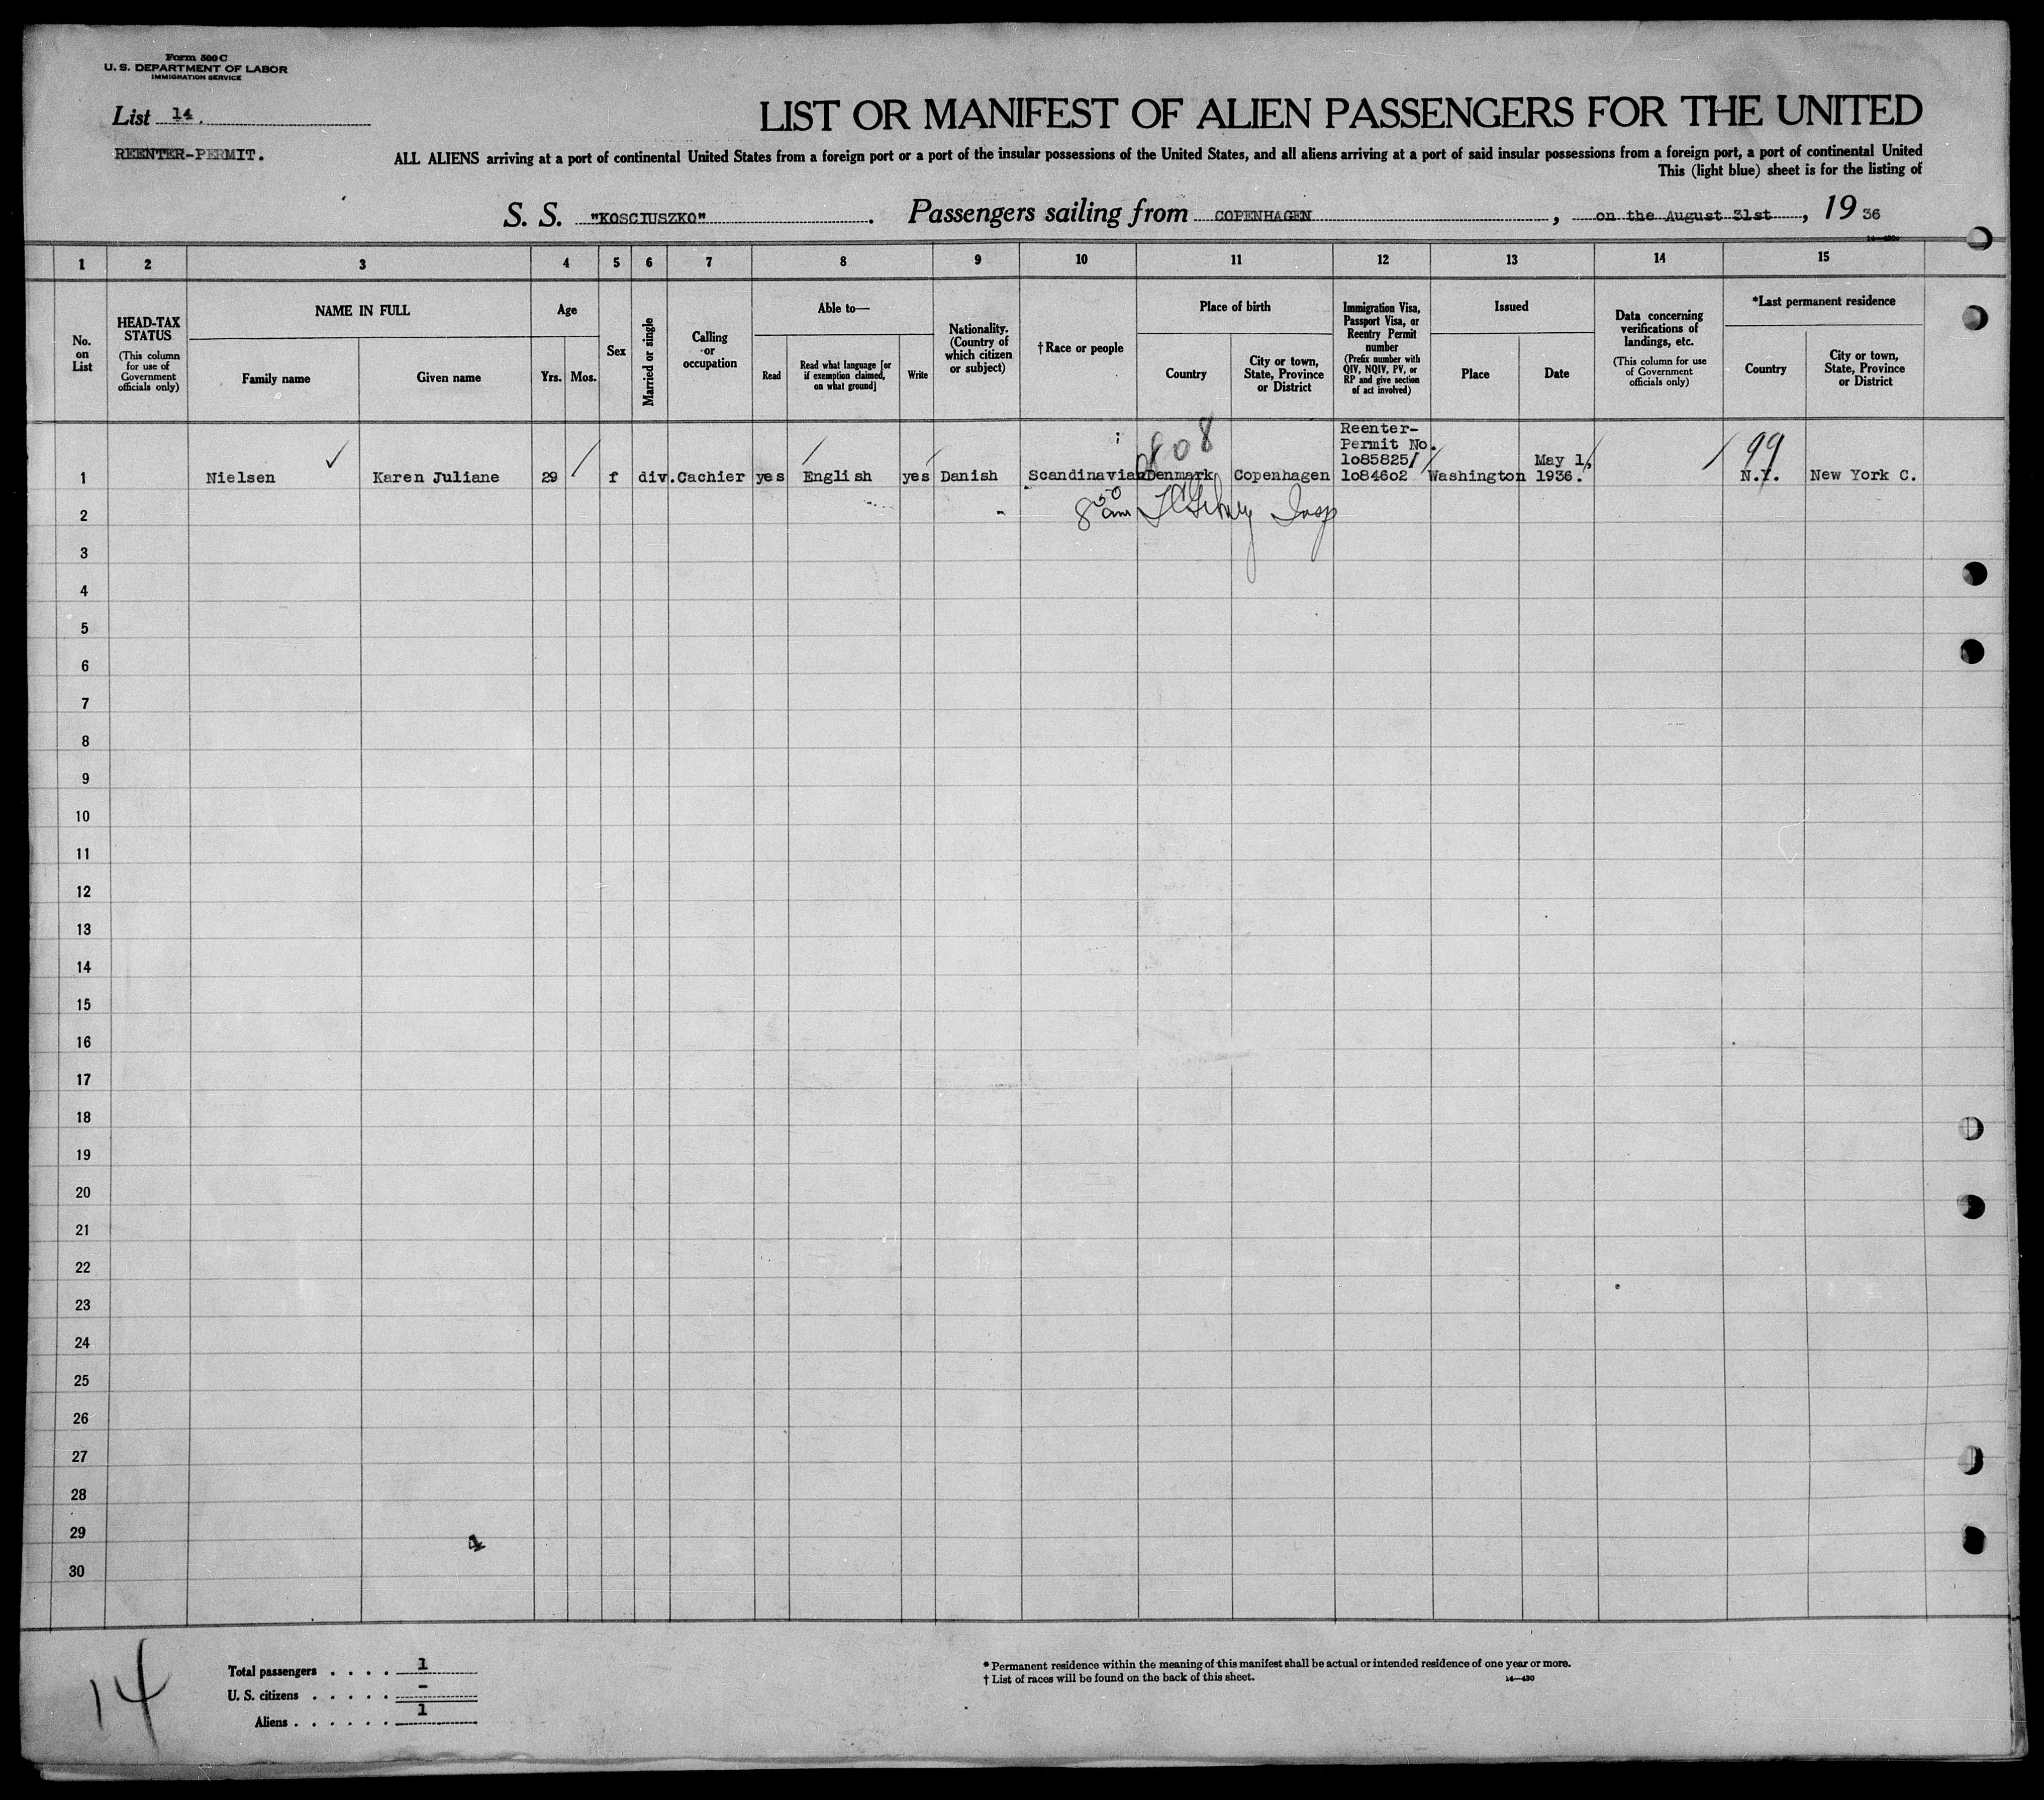 Form 500 C
U. S. DEPARTMENT OF LABOR
IMMIGRATION SERVICE
List 14.
REENTER-PERMIT.
LIST OR MANIFEST OF ALIEN PASSENGERS FOR THE UNITED
ALL ALIENS arriving at a port of continental United States from a foreign port or a port of the insular possessions of the United States, and all aliens arriving at a port of said insular possessions from a foreign port, a port of continental United
This (light blue) sheet is for the listing of
S. S. "KOSCIUSZKO". Passengers sailing from COPENHAGEN, on the August 31st, 1936
1 2 3 4 5 6 7 8 9 10 11 12 13 14 15
No. on List
HEAD-TAX STATUS
(This column for use of Government officials only)
NAME IN FULL
Family name
Given name
Age
Yrs. Mos.
Sex
Married or single
Calling or occupation
Able to—
Read
Read what language [or if exemption claimed, on what ground]
Write
Nationality. (Country of which citizen or subject)
†Race or people
Place of birth
Country
City or town, State, Province or District
Immigration Visa, Passport Visa, or Reentry Permit number
(Prefix number with QIV, NQIV, PV, or RP and give section of act involved)
Issued
Place
Date
Data concerning verifications of landings, etc.
(This column for use of Government officials only)
*Last permanent residence
Country
City or town, State, Province or District
808
99
Reenter-
Permit No.
1o85825/
1 Nielsen Karen Juliane 29 f div. Cachier yes English yes Danish Scandinavian Denmark Copenhagen 1o846o2 Washington May 1, 1936. N.Y. New York C.
2 8 50 am Insp
3
4
5
6
7
8
9
10
11
12
13
14
15
16
17
18
19
20
21
22
23
24
25
26
27
28
29
4
30
14
Total passengers . . . . 1
U. S. citizens . . . . . -
Aliens . . . . . . 1
* Permanent residence within the meaning of this manifest shall be actual or intended residence of one year or more.
† List of races will be found on the back of this sheet.
14—430